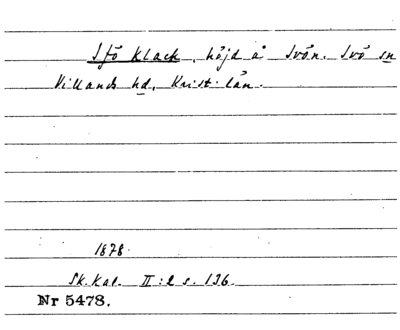 Ifö Klack, höjd å Ivön. Ivö sn
Villands hd, Krist. län.
1878.
Sk. Kal. II:2 s. 136.
Nr 5478.